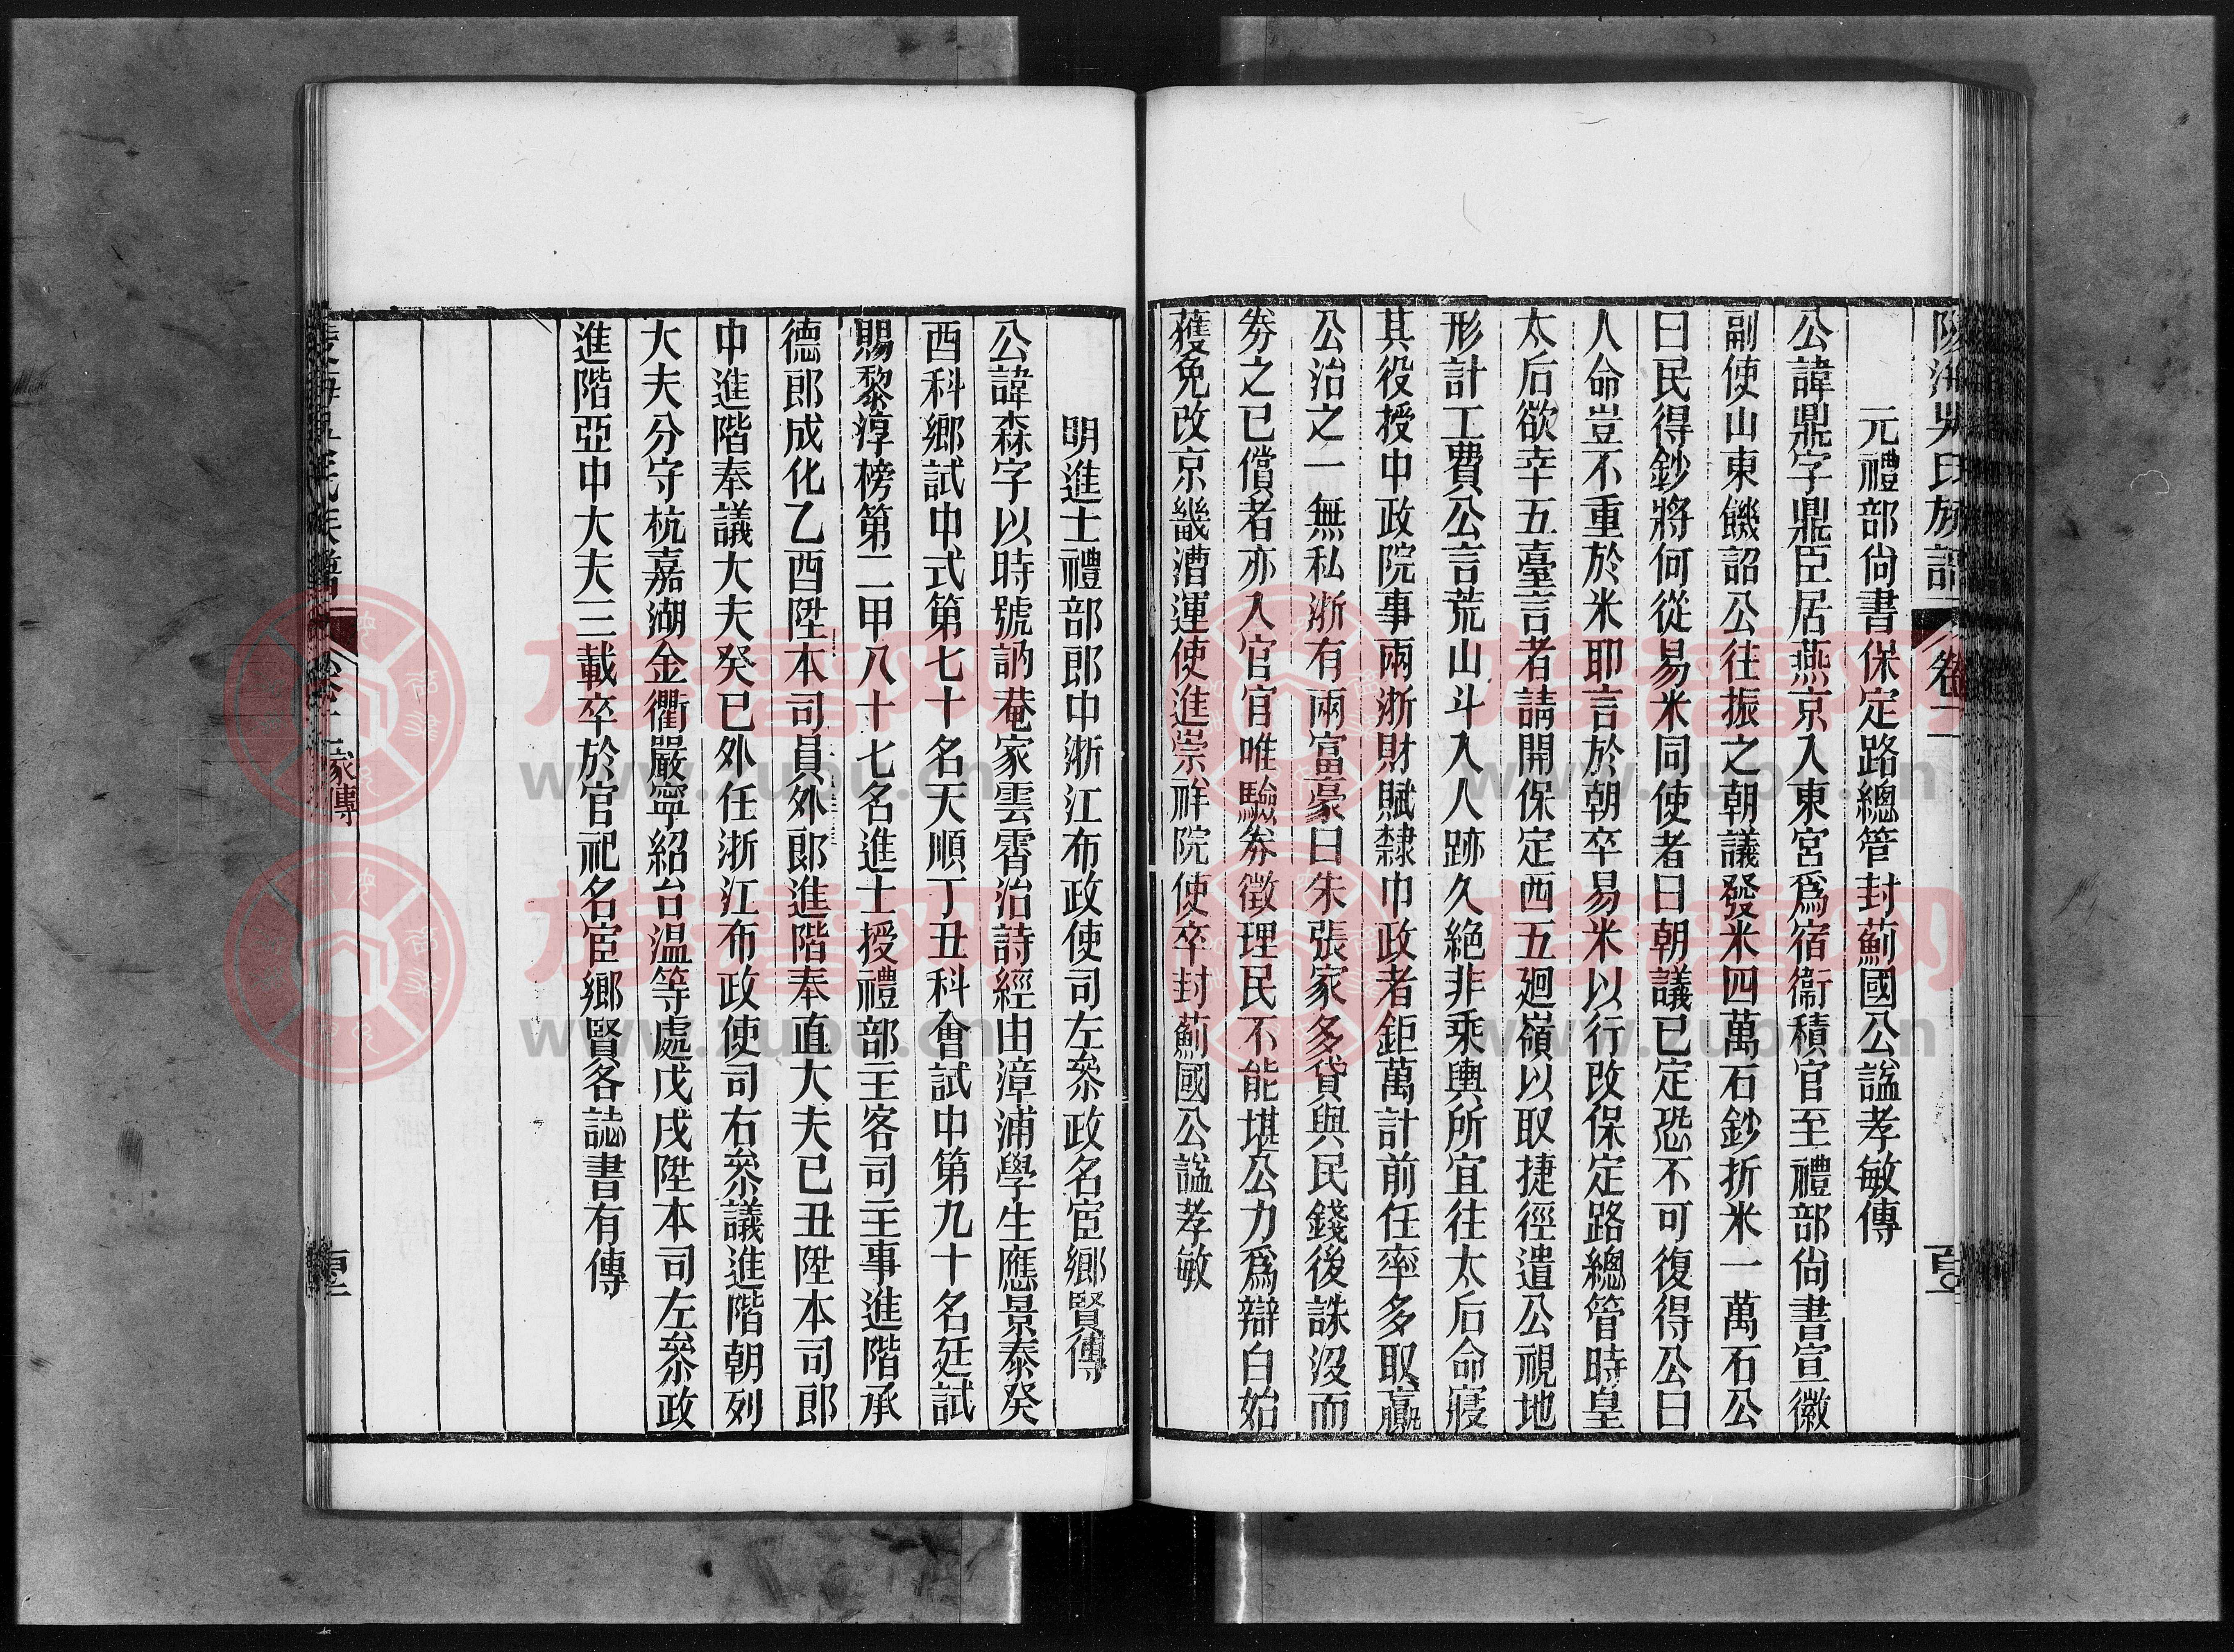 吳氏族譜 卷二
元禮部尚書保定路總管封薊國公諡孝敏傳
公諱鼎字鼎臣居燕京入東宮爲宿衛積官至禮部尚書宣徽
副使山東饑詔公往振之朝議發米四萬石鈔折米一萬石公
曰民得鈔將何從易米同使者曰朝議已定恐不可復得公曰
人命豈不重於米耶言於朝卒易米以行改保定路總管時皇
太后欲幸五臺言者請開保定西五廻嶺以取捷徑遣公視地
形計工費公言荒山斗入人跡久絕非乘輿所宜往太后命寢
其役授中政院事兩浙財賦隸中政者鉅萬計前任率多取贏
公治之一無私浙有兩富豪曰朱張家多貸與民錢後誅沒而
券之已償者亦入官官唯驗券徵理民不能堪公力爲辯白始
獲免改京畿漕運使進崇祥院使卒封薊國公諡孝敏
明進士禮部郎中浙江布政使司左叅政名宦鄉賢傳
公諱森字以時號訥菴家雲霄治詩經由漳浦學生應景泰癸
酉科鄉試中式第七十名天順丁丑科會試中第九十名廷試
賜黎淳榜第二甲八十七名進士授禮部主客司主事進階承
德郎成化乙酉陞本司員外郎進階奉直大夫已丑陞本司郎
中進階奉議大夫癸已外任浙江布政使司右叅議進階朝列
大夫分守杭嘉湖金衢嚴寧紹台溫等處戊戌陞本司左叅政
進階亞中大夫三載卒於官祀名宦鄉賢各誌書有傳
家傳
族谱网
www.zupu.cn
族谱网
www.zupu.cn
族谱网
www.zupu.cn
族谱网
www.zupu.cn